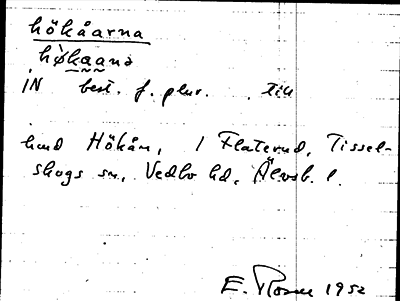 hökåarna
høkaana
IN best. f. plur. till
hmd Hökån, i Flaterud, Tissel-
skogs sn, Vedbo hd, Älvsb. l.
E. Rosen 1952